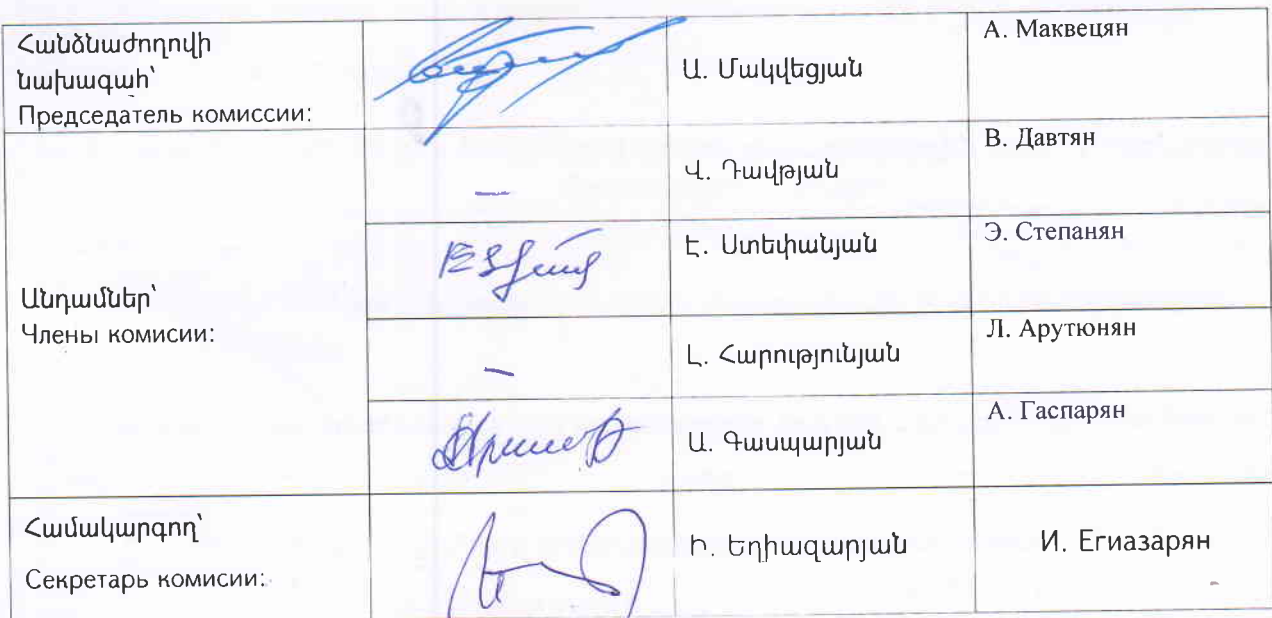 Հանձնաժողովի
նախագահ՝
Председатель комиссии:
Ա. Մակվեցյան
А. Маквецян
Վ. Դավթյան
В. Давтян
–
Անդամներ՝
Члены комисии:
Է. Ստեփանյան
Э. Степанян
Լ. Հարությունյան
Л. Арутюнян
–
Ա. Գասպարյան
А. Гаспарян
Համակարգող՝
Секретарь комисии:
Ի. Եղիազարյան
И. Егиазарян